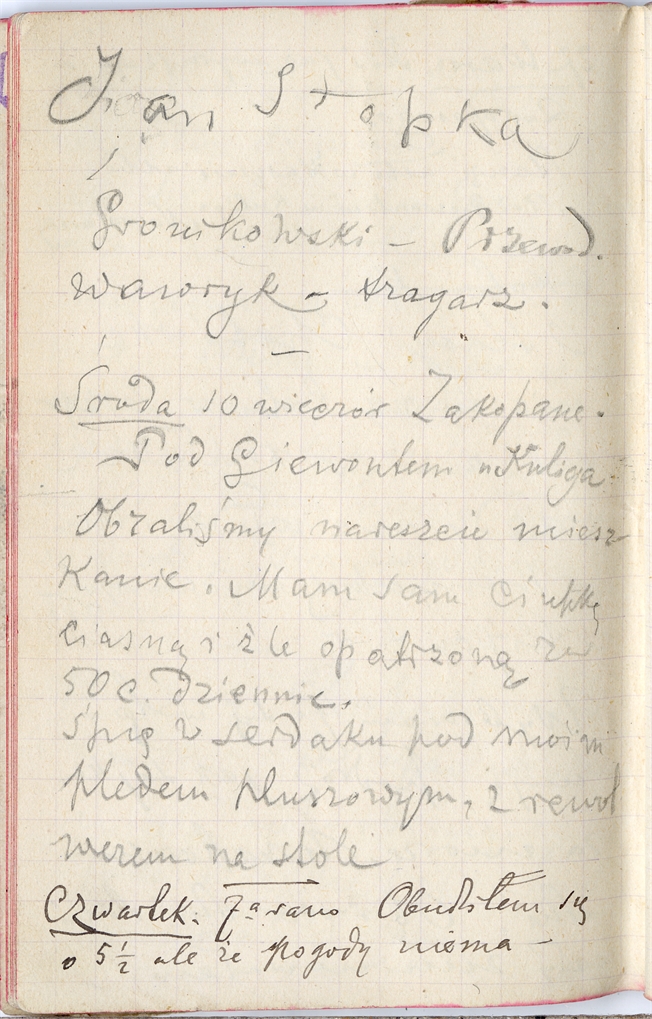 Jan Stopka
Gronikowski – Przewod.
Wawryk – tragarz.
Środa 10 wieczór Zakopane.
Pod Giewontem u Kuliga
Obraliśmy nareszcie miesz-
kanie. Mam sam ciupkę
ciasną i źle opatrzoną za
50 c. dziennie.
śpię w serdaku pod moim
pledem pluszowym, z rewol
werem na stole
Czwartek. 7ª rano Obudziłem się
o 5½ ale że pogody niema –